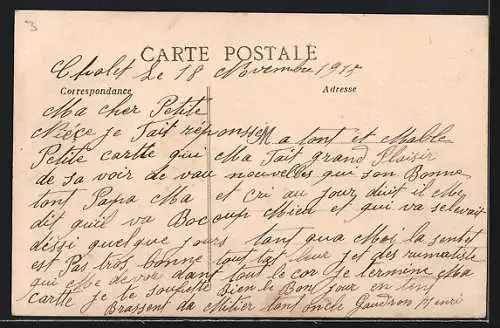 3
CARTE POSTALE
Cholet Le 18 Novembre 1915
Correspondance Adresse
Ma cher Petite
Nièce je fait réponsse a ton
Petite cartte qui Ma fait grand Plaisir
de sa voir de vau nouvelles qui son Bonne
ton Papa Ma et cri au jour duit il Me
dit qu'il va Bocoup Mieu et qui va se levait
dessi quelque jours tant qua Moi la sentet
est Pas tros bonne tout tat leur jet des rumatiste
qui Me devor dant tout le cor je termine Ma
cartte je te souhette Bien le Bon jour en
Brassent da Mitier ton oncle Gaudron Henri